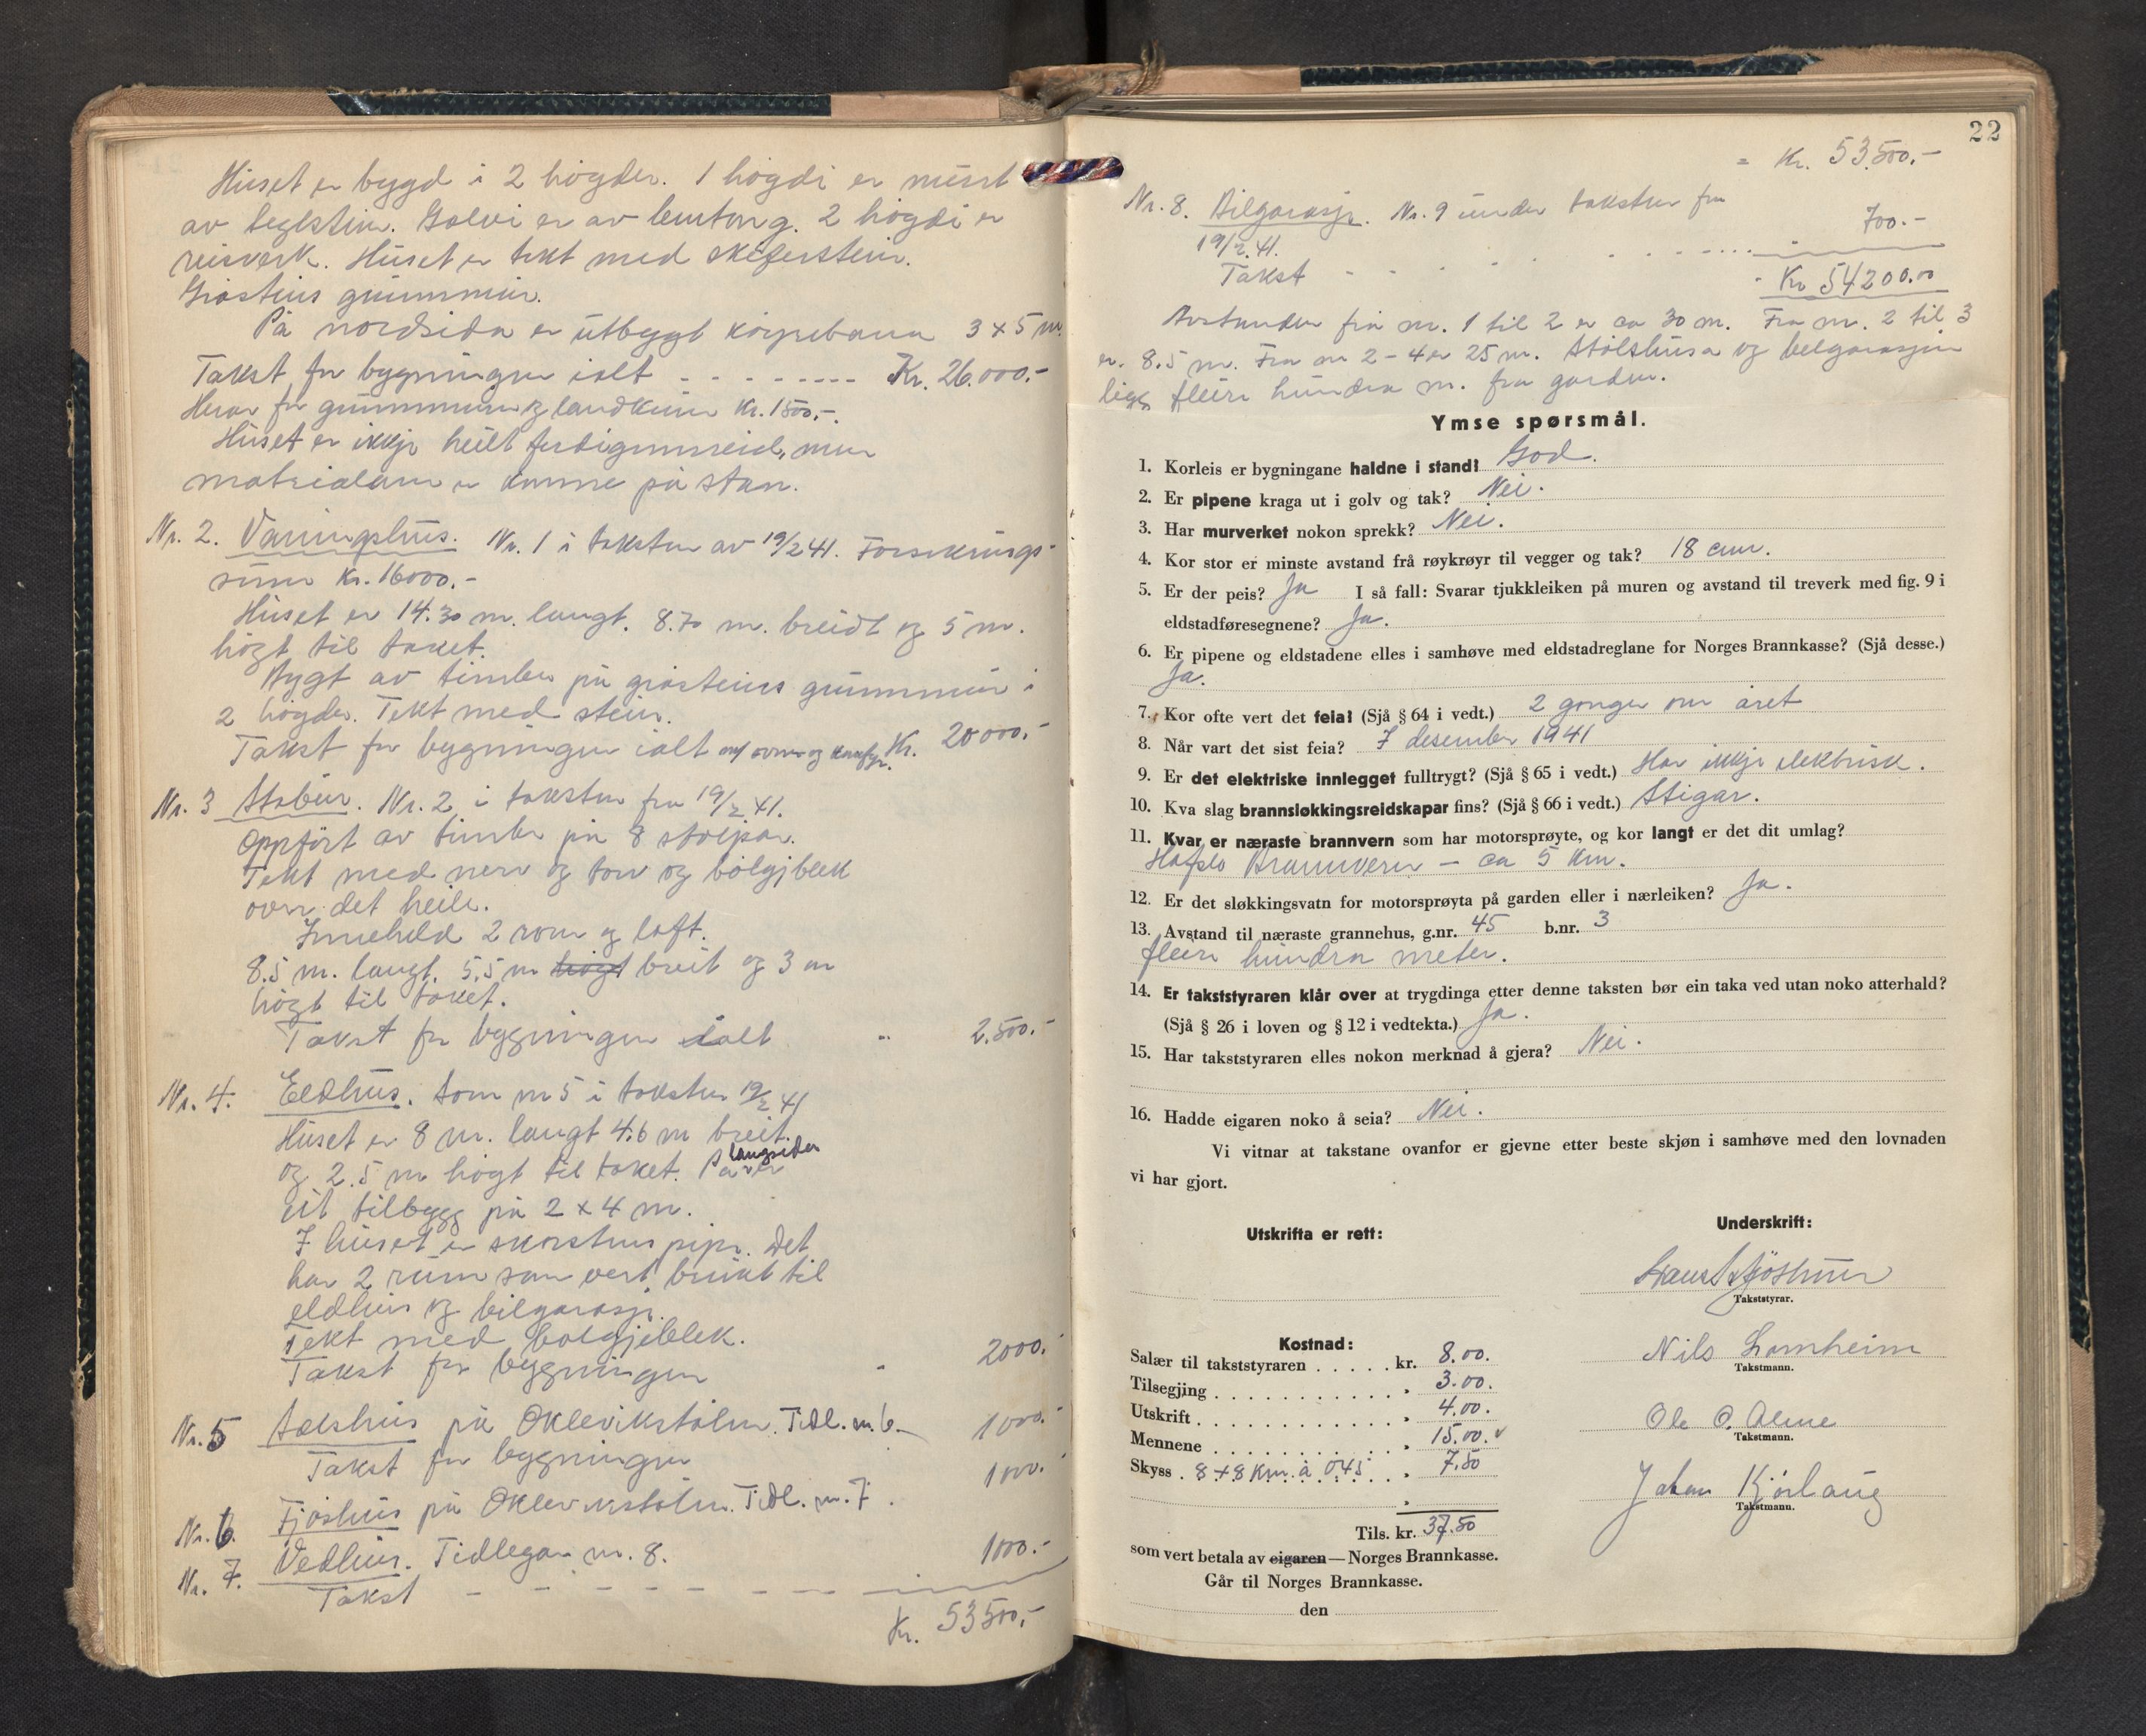 Huset er bygd i 2 høgder. 1 høgdi er murt
av teglstein. Golvi er av betong. 2 høgdi er
reisverk. Huset er tekt med skiferstein.
Gråsteins grunnmur.
På nordsida er utbygt køyrebana 3 x 5 m.
Takst for bygningen ialt - - - - - - - - Kr. 26.000.-
Herav for grunnmur og landkum Kr. 1500,-.
Huset er ikkje heilt ferdiginnreid, men
materialane er komne på stan.
Nr. 2. Våningshus. Nr. 1 i taksten av 19/2 41. Forsikrings-
sum Kr. 16000.-
Huset er 14.30 m. langt. 8.70 m. breidt og 5 m.
høgt til taket.
Bygt av timber på gråsteins grunnmur i
2 høgder. Tekt med stein.
Takst for bygningen ialt m/ ovner og komfyr. Kr. 20000.-
Nr. 3 Stabur. Nr. 2 i taksten fra 19/2 41.
Oppført av timber på 8 stolpar.
Tekt med nevr og torv og bølgjblekk
over det heile.
Inneheld 2 rom og loft.
8.5 m. langt. 5.5 m høgt breit og 3 m
høgt til taket.
Takst for bygningen ialt " 2.500.-
Nr. 4. Eldhus. Som nr 5 i taksten 19/2 41
Huset er 8 m. langt 4.6 m breit.
og 2.5 m høgt til taket. På langsiden er
eit tilbygg på 2 x 4 m.
I huset er skorsteins pipe. Det
har 2 rum som vert brukt til
eldhus og bilgarasje.
Tekt med bølgjeblekk.
Takst for bygningen " 2000.-
Nr. 5 Sælshus på Oklevikstølen. Tidl. nr. 6. 1000.-
Takst for bygningen
Nr. 6. Fjøshus på Oklevikstølen. Tidl. nr. 7. 1000.-
Nr. 7. Vedhus. Tidlegare nr. 8.
Takst - - - - - - - 1000.-
Kr. 53500,-
22
= Kr. 53.500.-
Nr. 8. Bilgarasje. Nr. 9 under taksten fra
19/2 41. 700.-
Takst - - - - - Kr 54200.00
Avstanden frå nr. 1 til 2 er ca 30 m. Fra nr. 2 til 3
er. 8.5 m. Fra nr 2 - 4 er 25 m. Stølshusa og bilgarasjen
ligg fleire hundra m. fra garden.
Ymse spørsmål.
1. Korleis er bygningane haldne i stand? God.
2. Er pipene kraga ut i golv og tak? Nei.
3. Har murverket nokon sprekk? Nei.
4. Kor stor er minste avstand frå røykrøyr til vegger og tak? 18 cm.
5. Er der peis? Ja I så fall: Svarar tjukkleiken på muren og avstand til treverk med fig. 9 i
eldstadføresegnene? Ja.
6. Er pipene og eldstadene elles i samhøve med eldstadreglane for Norges Brannkasse? (Sjå desse.)
Ja.
7. Kor ofte vert det feia? (Sjå § 64 i vedt.) 2 gonger om året
8. Når vart det sist feia? 7 desember 1941
9. Er det elektriske innlegget fulltrygt? (Sjå § 65 i vedt.) Har ikkje elektrisk.
10. Kva slag brannsløkkingsreidskapar fins? (Sjå § 66 i vedt.) Stigar.
11. Kvar er næraste brannvern som har motorsprøyte, og kor langt er det dit umlag?
Hafslo Brannvern - ca 5 km.
12. Er det sløkkingsvatn for motorsprøyta på garden eller i nærleiken? Ja.
13. Avstand til næraste grannehus, g.nr. 45 b.nr. 3
fleire hundra meter.
14. Er takststyraren klår over at trygdinga etter denne taksten bør ein taka ved utan noko atterhald?
(Sjå § 26 i loven og § 12 i vedtekta.) Ja.
15. Har takststyraren elles nokon merknad å gjera? Nei.
16. Hadde eigaren noko å seia? Nei.
Vi vitnar at takstane ovanfor er gjevne etter beste skjøn i samhøve med den lovnaden
vi har gjort.
Utskrifta er rett:
Underskrift:
Takststyrar.
Nils Lomheim
Takstmann.
Ole O. Alme
Takstmann.
Johan Kjørlaug
Takstmann.
Kostnad:
Salær til takststyraren . . . . . kr. 8.00.
Tilsegjing . . . . . . . . . . . " 3.00.
Utskrift . . . . . . . . . . . . " 4.00.
Mennene . . . . . . . . . . . " 15.00. v
Skyss . 8+8 km. à 045 . . " 7.50
"
Tils. kr. 37.50
som vert betala av eigaren — Norges Brannkasse.
Går til Norges Brannkasse.
den